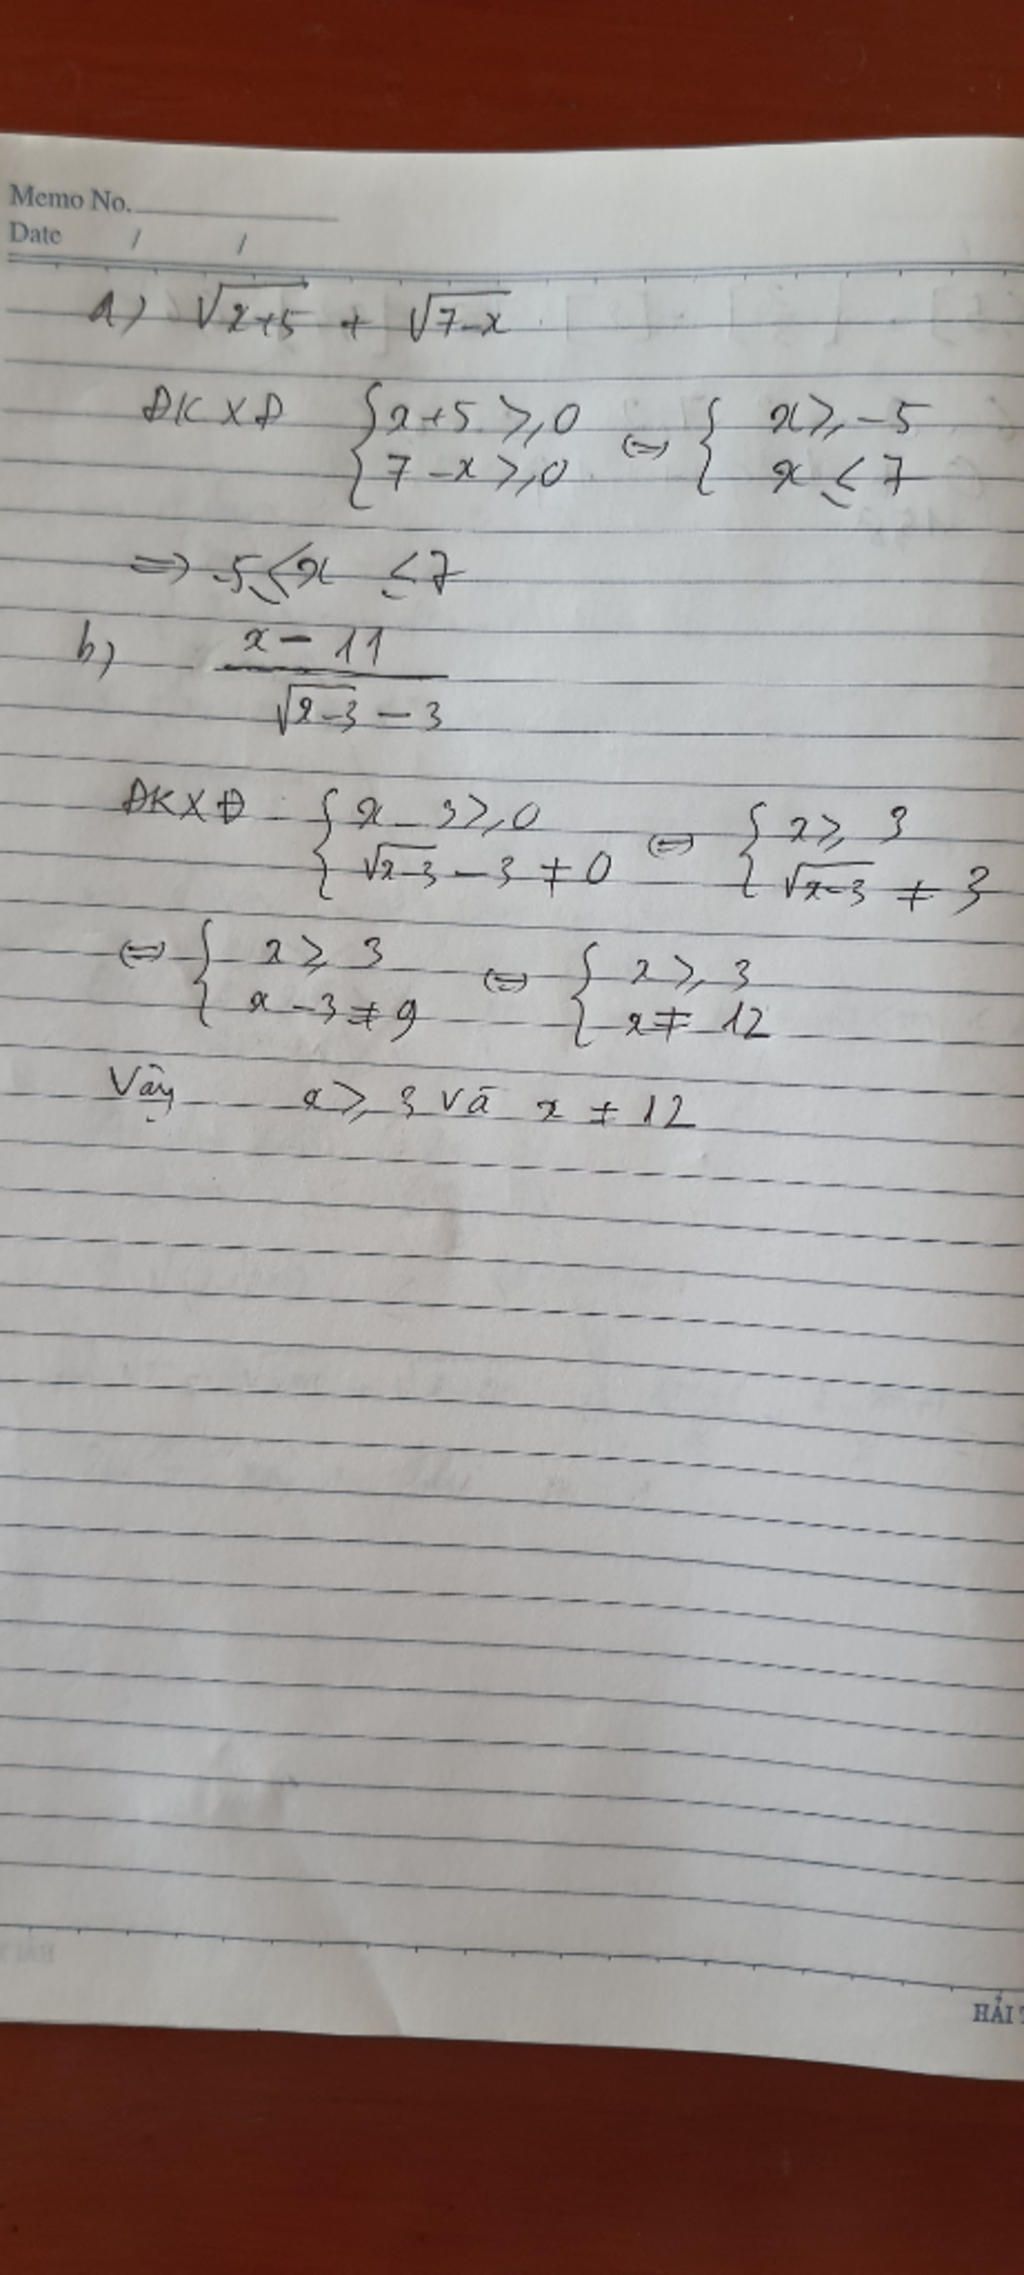 Memo No.
Date / /
a) √x+5 + √7-x
ĐKXĐ { x+5 ≥ 0 ⇔ { x ≥ -5
7-x ≥ 0 x ≤ 7
⇒ -5 ≤ x ≤ 7
b) x - 11
√x-3 - 3
ĐKXĐ { x - 3 ≥ 0 ⇔ { x ≥ 3
√x-3 - 3 ≠ 0 √x-3 ≠ 3
⇔ { x ≥ 3 ⇔ { x ≥ 3
x - 3 ≠ 9 x ≠ 12
Vậy x ≥ 3 và x ≠ 12
HẢI